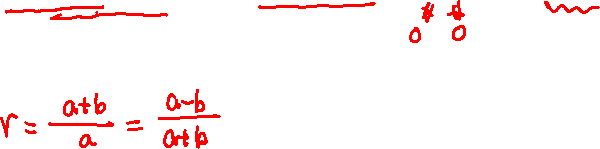 # #
0 0
r = (a+b)/a = (a-b)/(a+b)